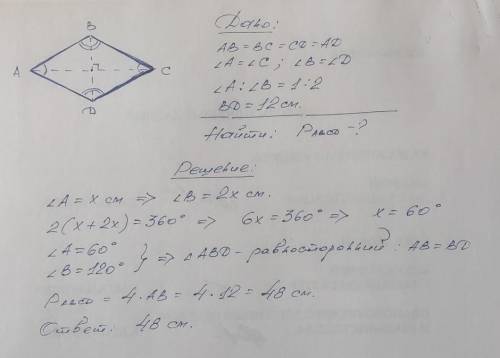 Дано:
B
A
C
D
AB = BC = CD = AD
∠A = ∠C ; ∠B = ∠D
∠A : ∠B = 1 : 2
BD = 12 см.
Найти: PABCD - ?
Решение:
∠A = x см => ∠B = 2x см.
2(x + 2x) = 360° => 6x = 360° => x = 60°
∠A = 60°
∠B = 120° } => ∠ABD - равносторонний : AB = BD
PABCD = 4 · AB = 4 · 12 = 48 см.
Ответ: 48 см.